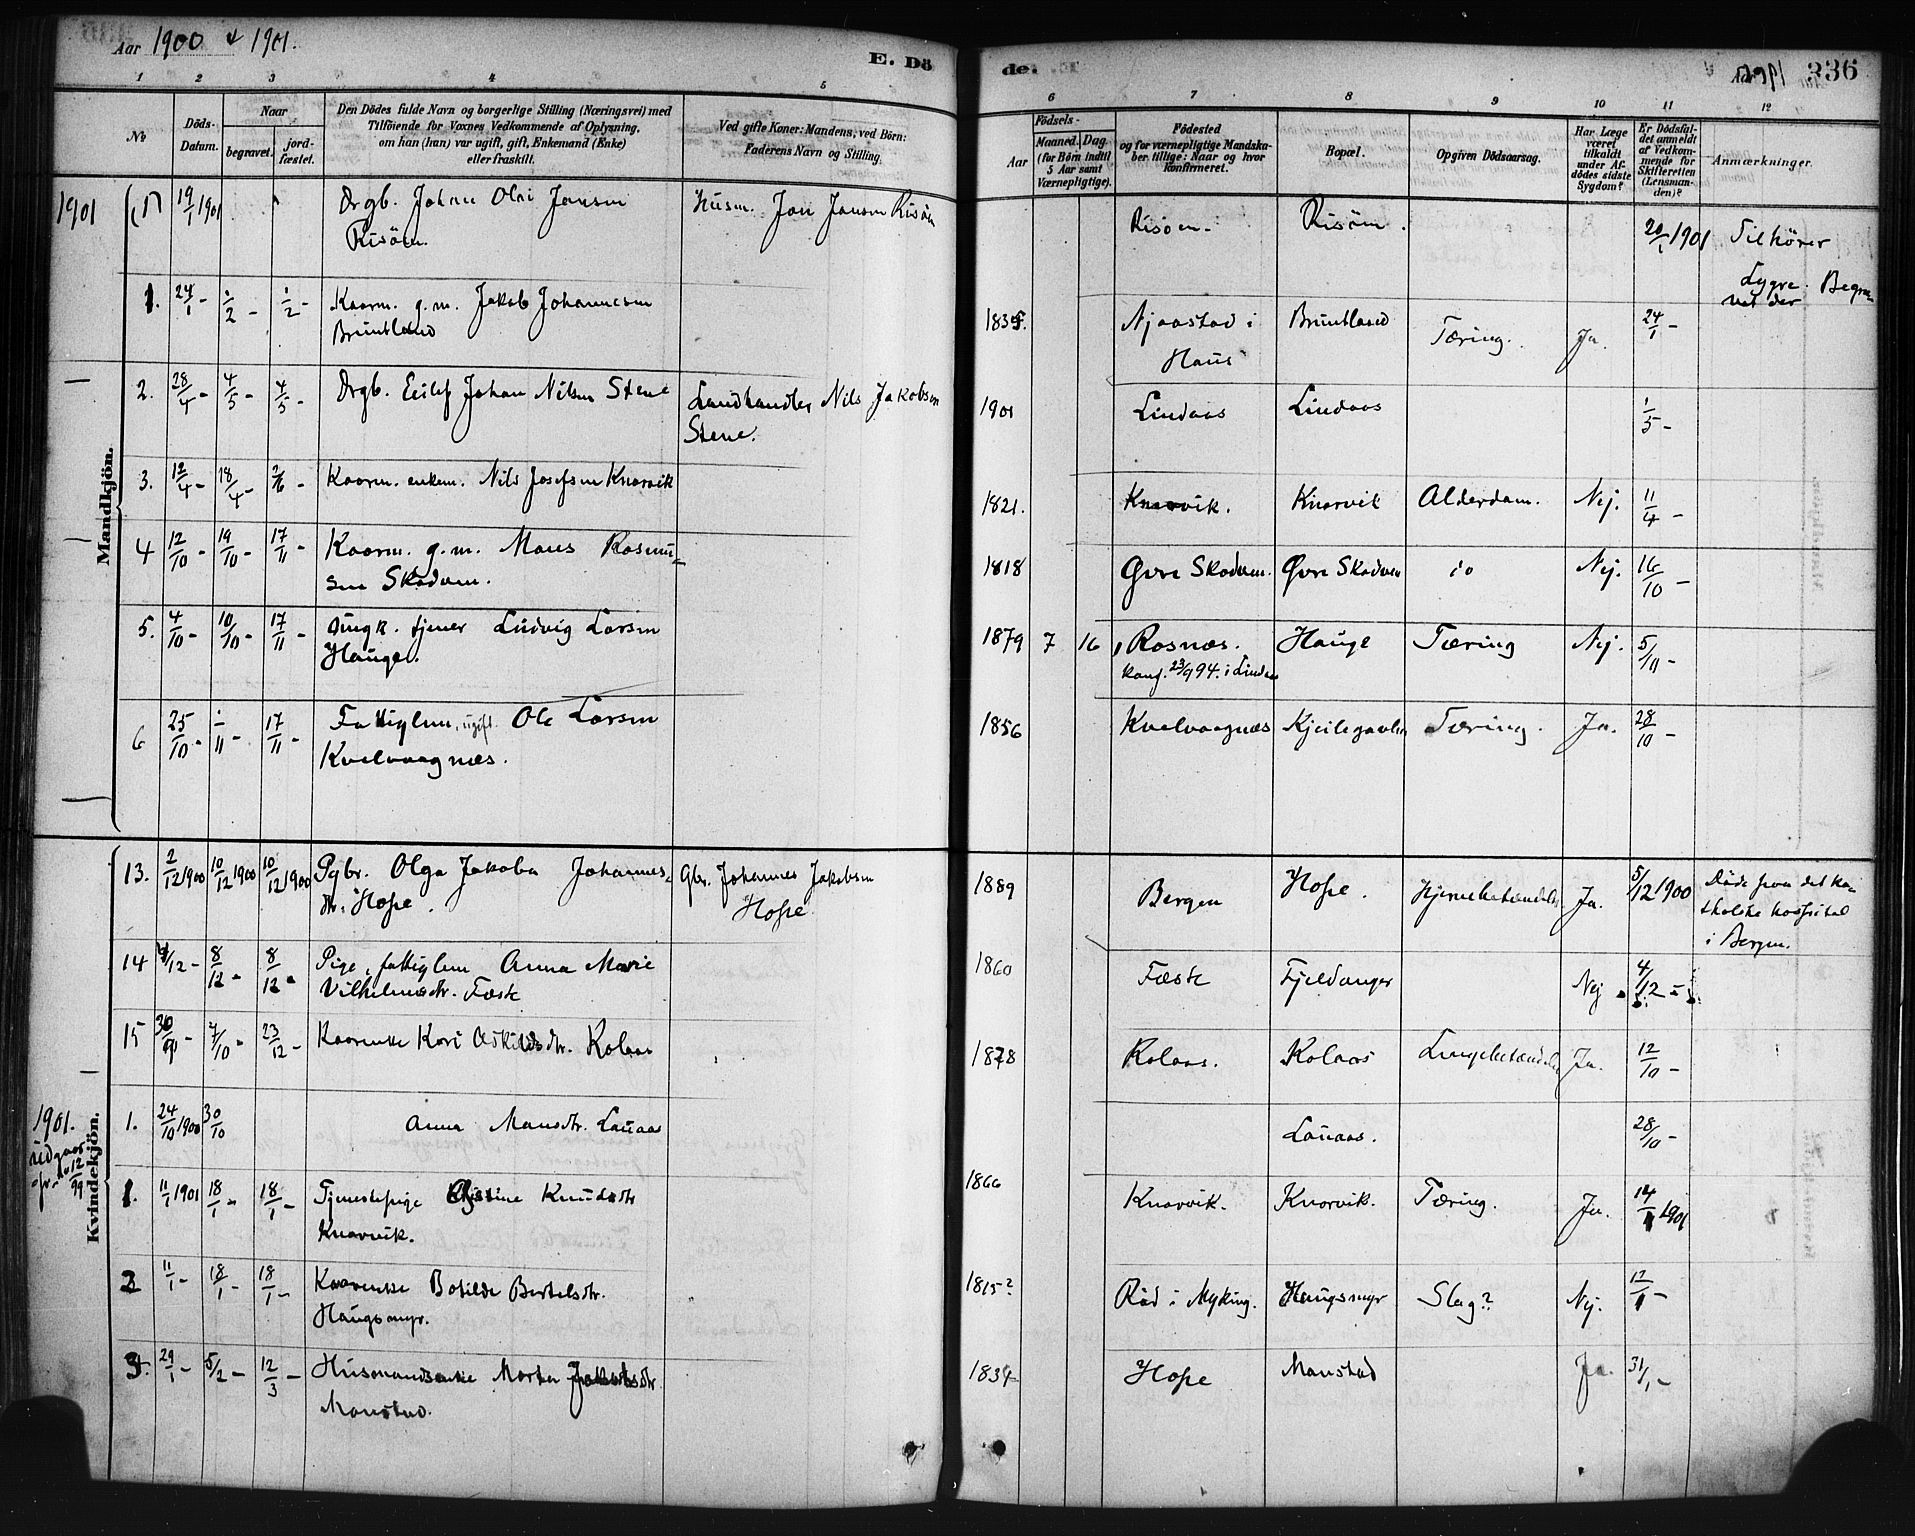 Aar 1900 & 1901.
E. Dö
de.
336
1 2 3 4 5
6 7 8 9 10 11 12
No
Döds-
Datum.
Naar
begravet.
jord-
fæstet.
Den Dödes fulde Navn og borgerlige Stilling (Næringsvei) med
Tilföiende for Voxnes Vedkommende af Oplysning,
om han (hun) var ugift, gift, Enkemand (Enke)
eller fraskilt.
Ved gifte Koner: Mandens, ved Börn:
Faderens Navn og Stilling.
Födsels-
Aar
Maaned. Dag.
(for Börn indtil
5 Aar samt
Værnepligtige).
Födested
og for værnepligtige Mandska-
ber tillige: Naar og hvor
konfirmeret.
Bopæl.
Opgiven Dödsaarsag.
Har Læge
været
tilkaldt
under Af-
dödes sidste
Sygdom?
Er Dödsfal-
det anmeldt
af Vedkom-
mende for
Skifteretten
(Lensman-
den)?
Anmærkninger.
Mandkjön.
1901 19/1 1901 Drgb. Johan Olai Jansen Husm. Jan Jansen Risöen Risöen. Risöen. 20/1 1901 Tilhörer
Risöen. Lygre. Begra-
vet der
1. 24/1 - 1/2 - 1/2 - Kaarm. g.m. Jakob Johannesen 1835. Njaastad i Bruntland Tæring. Ja. 24/1 -
Bruntland Haus
2. 28/4 - 4/5 - 4/5 - Drgb. Eilef Johan Nilsen Stene Landhandler Nils Jakobsen 1901 Lindaas Lindaas 1/5 -
Stene.
3. 12/4 - 18/4 - 2/6 - Kaarm. enkem. Nils Josefsen Knarvik 1821. Knarvik. Knarvik Alderdom. Nej. 11/4 -
4 12/10 - 19/10 - 17/11 - Kaarm. g.m. Mons Rasmu- 1818 Øvre Skodven. Øvre Skodven do Nej. 16/10 -
sen Skodven.
5. 4/10 - 10/10 - 17/11 - Ungk. tjener Ludvig Larsen 1879 7 16 Rosnæs. Hauge Tæring Nej. 5/10 -
Hauge. konf. 23/9 94. i Lindaas
6 25/10 - 1/11 - 17/11 - Fattiglem, ugift Ole Larsen 1856 Kvalvaagnæs Kjeilegavlen Tæring. Ja. 28/10 -
Kvalvaagnæs.
Kvindekjön.
13. 2/12 1900 10/12 1900 10/12 1900 Pgbr. Olga Jakoba Johannes- Gbr. Johannes Jakobsen 1889 Bergen Hope. Hjernebetændelse Ja. 5/12 1900 Döde paa det ka-
dtr. Hope. Hope. tholske hospital
i Bergen.
14 /12 - 8/12 - 8/12 - Pige, fattiglem Anna Marie 1860 Fæste Fjeldanger Nej 4/12 -
Vilhelmsdtr. Fæste
15 30/9 - 7/10 - 23/12 - Kaarenke Kari Askildsdtr. Kolaas 1828 Kolaas. Kolaas Lungebetændelse Ja. 12/10 -
1901.
udgaar.
12/99
1. 24/10 1900 30/10 Anna Monsdtr. Lauaas Lauaas. 28/10 -
1. 11/1 1901 18/1 - 18/1 - Tjenestepige Kristine Knudsdtr 1866 Knarvik. Knarvik. Tæring. Ja. 14/1 1901
Knarvik.
2 11/1 - 18/1 - 18/1 - Kaarenke Botilde Bertelsdtr. 1815? Räd i Myking. Haugsmyr Slag? Nej. 12/1 -
Haugsmyr.
3. 29/1 - 5/2 - 12/3 - Husmandsenke Marta Jakobsdtr 1834 Hope Monstad Ja. 31/1 -
Monstad.